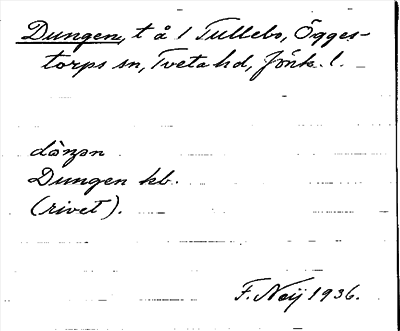 Dungen, t å 1 Tullebo, Ögges-
torps sn, Tveta hd, Jönk. l.
dàŋən
Dungen kb.
(rivet).
F. Neij 1936.